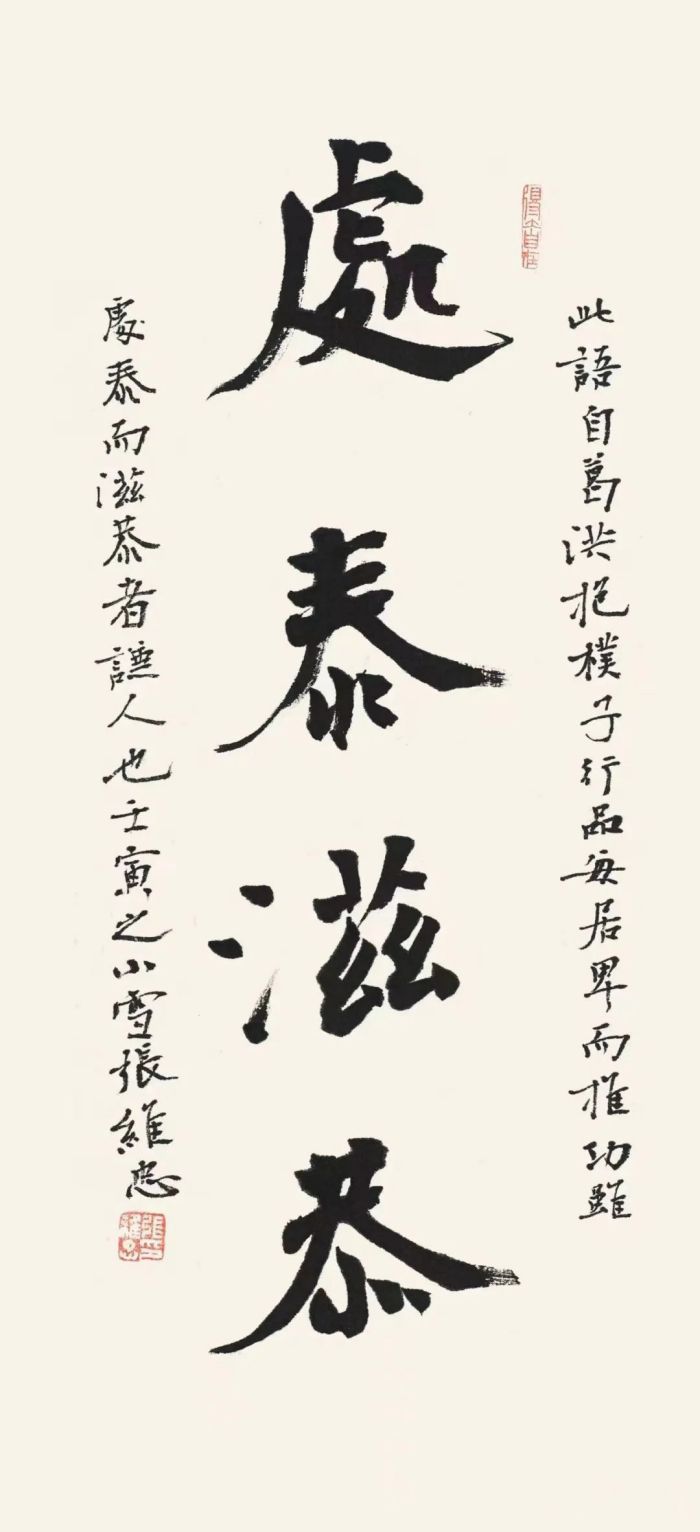 處泰滋恭
此語自葛洪抱樸子行品每居卑而推功雖
處泰而滋恭者謙人也壬寅之小雪張維忠